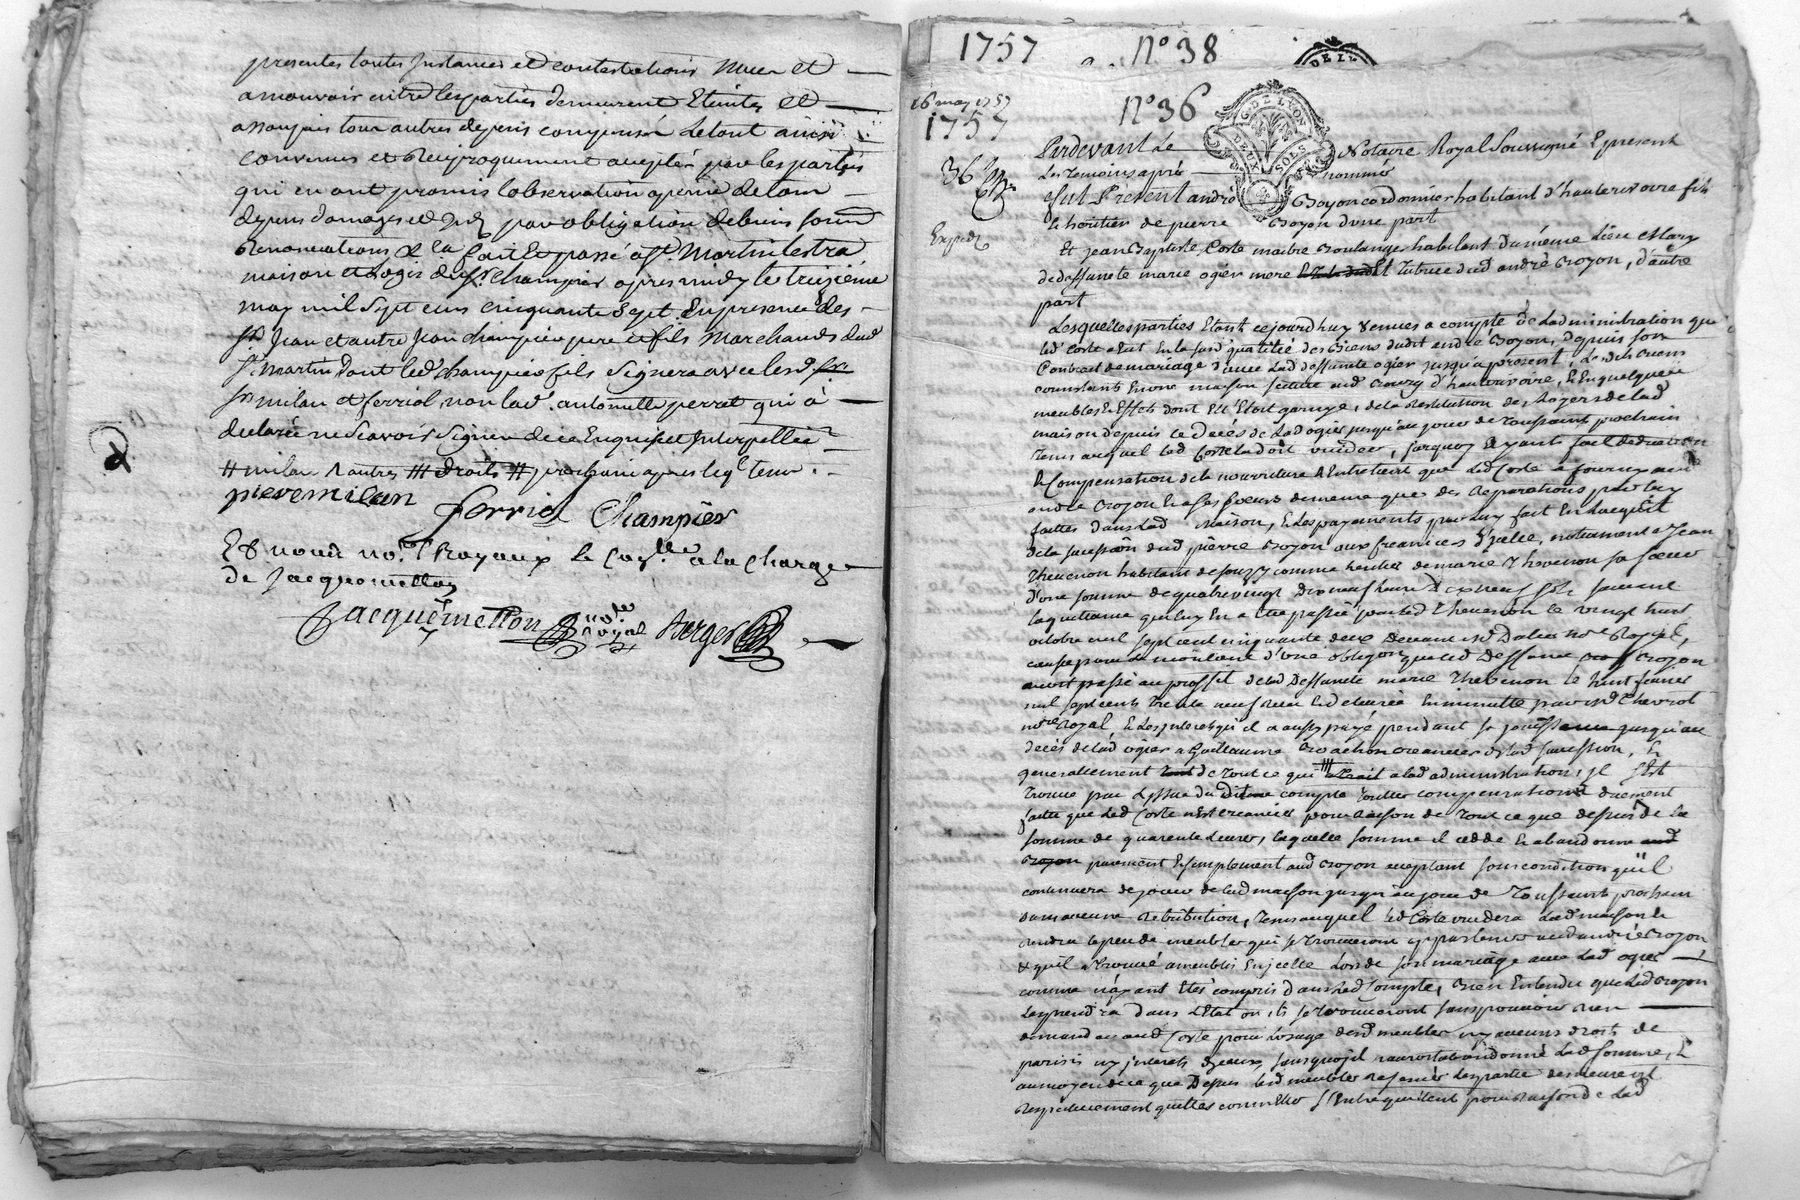 presentes toutes instances et contestations mues et
a mouvoir entre les parties demeurent Eteintes et
assoupies tous autres depens compensés Le tout ainsi
convenus et Reciproquement accepté par les parties
qui en ont promis l'observation a peine de tous
depens domages et par obligation de biens soum
Renonciations & la fait et passé a St Martin lestra
maison et Logis dud sr Champier apres midy le treizieme
may mil sept cens cinquante sept. En presence des
srs Jean et autre Jean champier pere et fils Marchands dud
St Martin dont led champier fils signera avec lesd srs
srs milan et ferriol, non lad. antoinette perret qui a
declaré ne scavoir signer de ce Enquise et Interpellée
# milan autres ### droits # prochain apres leql tems.
pierre milan
ferriol Champier
Et nous no.res Royaux le a la charge
de Jacquemetton
Jacquemetton no.re royal Berger
1757 N° 38
DE LY
16 may 1757 N° 36
1757
G. DE LYON
DEUX SOLS
Pardevant Le Notaire Royal Soussigné Et present
Les temoins aprés nommés
36
fut Present andré Croyon cordonnier habitant d'hauterivoire fils
& heritier de pierre Croyon d'une part
Expedié
Et jean Baptiste Coste maitre Boulanger habitant du méme Lieu & Mary
de deffunte marie ogier mere Et tutrice dud andré Croyon, d'autre
part
Lesquelles parties Etant cejourdhuy venues a compte de Ladministration que
led Coste a eut En la susd qualitée des Biens dudit andré Croyon, depuis son
Contract de mariage d'avec Lad deffunte ogier jusqu'a present, Lesdits Biens
consistants En une maison scituée aud Bourg d'hauterivoire, & En quelques
meubles & Effets dont Ell' Etoit garnye, de la Restitution des Loyers de lad
maison depuis le Decés de Lad ogier jusqu'au jour de Toussaint prochain
tems auquel led Coste la doit vuider, surquoy Et ayant fait deduction
& Compensation de la nourriture & Entretient que led Coste a fournys aud
andré Croyon & a ses sœurs de meme que des Reparations par luy
faittes dans Lad maison, & des payements par luy fait En Lacquit
de la succession dud pierre Croyon aux creanciers d'jcelle, notamment a Jean
Thevenon habitant de souzy comme heritier de marie Thevenon sa sœur
d'une somme de quatrevingt dix neuf livres dix neuf sols suivant
la quittance qui luy En a Eté passée par led Thevenon le vingt huit
octobre mil sept cent cinquante deux devant Me Dalier Nore Royal,
cause pour le montant d'une obligõn que led deffunt Croyon
avoit passé au proffit de lad Deffunte marie Thevenon le huit fevrier
mil sept cents trente neuf Receue & delivrée En minutte par Me Chevrot
nore Royal, & Les interets qu'il a aussy payé pendant sa jouissance jusqu'au
decés de lad ogier a Guillaume creancier de lad succession, Et
generallement de tout ce qui a lad administration, jl s'Est
trouvé par L'issue du compte toutes compensations duement
faites que Led Coste n'Est creancier pour Raison de tout ce que dessus de la
somme de quarente Livres, laquelle somme il cedde & abandonne
purement & simplement aud Croyon acceptant sous condition qu'il
continuera de jouir de lad maison jusqu'au jour de Toussaint prochain
sans aucune Retribution, tems auquel led Coste vuidera Lad maison &
rendra le peu de meubles qui se trouveront appartenir aud andré Croyon
& qu'il a trouvé ameublis En jcelle Lors de son mariage avec Lad ogier
comme n'ayant Eté compris dans led Compte, Bien Entendu que Led Croyon
les prendra dans L'Etat ou ils se trouveront sans pouvoir Rien
demander aud Coste pour L'usage desd meubles ny aucuns droits de
parisis ny interets d'jceux, sans quoy jl n'auroit abandonné Lad somme, &
au moyen de ce que Dessus & lesd meubles Les parties demeurent
Respectivement quittes comm'Elles s'Entrequittent pour Raison de Lad